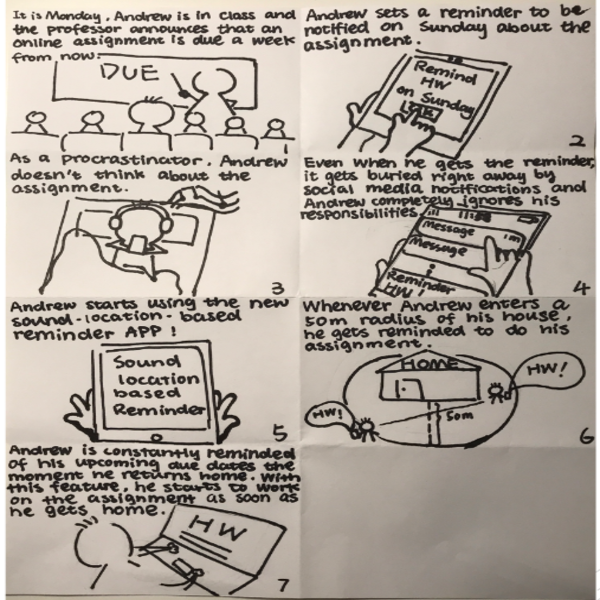 It is Monday, Andrew is in class and
the professor announces that an
online assignment is due a week
from now.
DUE
1
Andrew sets a reminder to be
notified on Sunday about the
assignment.
Remind
HW
on Sunday
OK
2
As a procrastinator, Andrew
doesn't think about the
assignment.
3
Even when he gets the reminder,
it gets buried right away by
social media notifications and
Andrew completely ignores his
responsibilities.
Message
1m
Message
Reminder
HW
4
Andrew starts using the new
sound-location-based
reminder APP!
Sound
location
based
Reminder
5
Whenever Andrew enters a
50m radius of his house,
he gets reminded to do his
assignment.
HOME
HW!
HW!
50m
6
Andrew is constantly reminded
of his upcoming due dates the
moment he returns home. With
this feature, he starts to work
on the assignment as soon as
he gets home.
HW
7